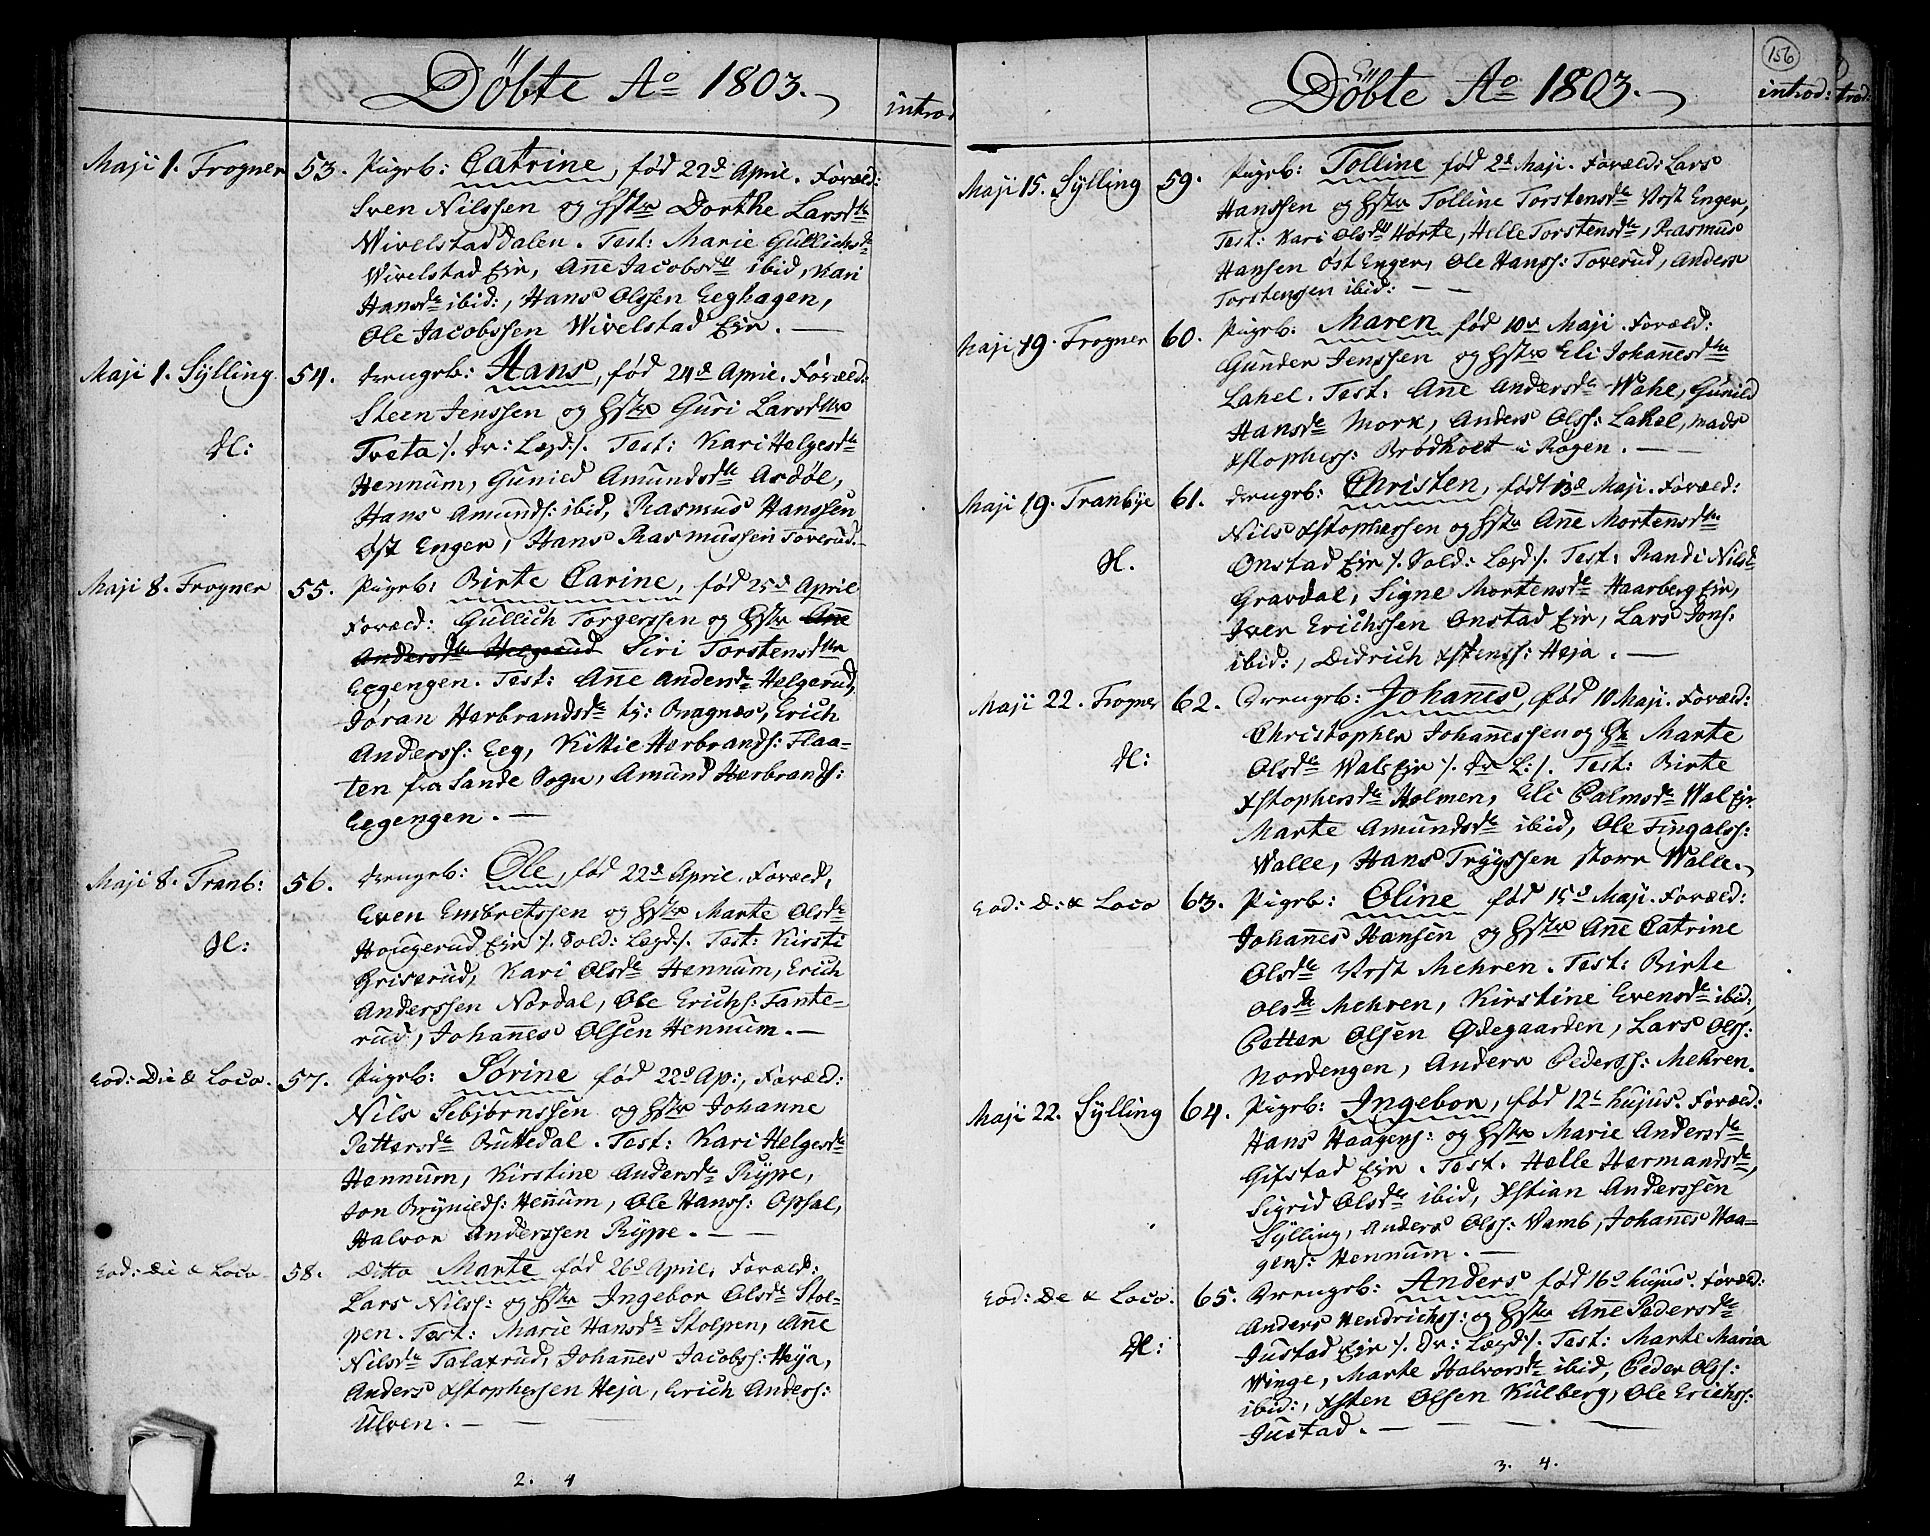 Döbte Aº 1803.
introd
Maji 1. Frogner 53. Pigeb: Catrine, fød 22d April. Foræld:
Sven Nilssen og Hstr Dorthe Larsdtr
Wivelstaddalen. Test: Marie Gullichsdr
Wivelstad Eir, Añe Jacobsdtr ibid, Kari
Hansdr ibid:, Hans Olssen Eeghagen,
Ole Jacobssen Wivelstad Eir.
Maji 1. Sylling 54. Drengb: Hans, fød 24d April. Foræld:
Steen Jenssen og Hstr Guri Larsdttr
H: Tveta /. Dr: Lægd:/. Test: Kari Helgesdr
Hennum, Gunild Amundsdtr Asdøl,
Hans Amunds: ibid, Rasmus Hanssen
Øst Enger, Hans Rasmussen Toverud.
Maji 8. Frogner 55. Pigeb: Birte Carine, fød 25d April
Foræld: Gullich Torgerssen og Hstr Añe
Andersdtr Helgerud Siri Torstensdttr
Eegengen. Test: Añe Andersdr Helgerud,
Joran Herbrandsdr ty: Bragnæs, Erich
Anderss: Eeg, Kittil Herbrands: Flaa-
ten fra Sande Sogn, Amund Herbrands:
Eegengen.
Maji 8. Tranb: 56. Drengb: Ole, fød 22d April. Foræld,
Even Embretssen og Hstr Marte Olsdr
H: Hougerud Eir /. Sold: Lægd:/. Test: Kirsti
Griserud, Kari Olsdr Hennum, Erich
Anderssen Nordal, Ole Erichs: Tante-
rud, Johañes Olsen Hennum.
Eod: Die & Loco. 57. Pigeb: Sørine fød 22d Ap:, Foræld:
Nils Sebjørnssen og Hstr Johanne
Pettersdr Buttedal. Test: Kari Helgesdr
Hennum, Kirstine Andersdr Rype,
Jon Brynilds: Heñum, Ole Hanss: Opsal,
Halvor Anderssen Rype.
Eod: Die & Loco 58. Ditto Marte fød 26d April, Foræld:
Lars Nilss: og Hstr Ingebor Olsdr Stol-
pen. Test: Marie Hansdr Stolpen, Añe
Nilsdr Talaxrud, Johañes Jacobss: Heja,
Anders Xstophersen Heja, Erich Anders:
Ulven.
2. 4
156
Döbte Aº 1803.
introd: trod:
Maji 15. Sylling 59. Pigeb: Tolline fød 2d Maji. Foræld: Lars
Hanssen og Hstr Tolline Torstensdr Vest Enger,
Test: Kari Olsdtr Hørte, Helle Torstensdr, Rasmus
Hansen Øst Enger, Ole Hanss: Toverud, Anders
Torstenssen ibid:
Maji 19. Frogner 60. Pigeb: Maren fød 10d Maji. Foræld:
Gunder Jenssen og Hstr Eli Johañesdtr
Lahel. Test: Añe Andersdr Wahl, Gunild
Hansdr Mork, Anders Olss: Lahel, Mads
Xstophers: Brødholt i Røgen.
Maji 19. Tranbye 61. Drengb: Christen, fød 13d Maji. Foræld:
Nils Xstophersen og Hstr Añe Mortensdtr
H. Onstad Eir /. Sold: Lægd:/. Test: Randi Nilsd
Gravdal, Signe Mortensdr Haarberg Eir,
Iver Erichssen Onstad Eir, Lars Jons:
ibid:, Didrich Xstenss: Heja.
Maji 22. Frogner 62. Drengb: Johañes, fød 10 Maji. Foræld:
Christopher Johañessen og Hr Marte
H: Olsdr Wals Eir /. Dr L:/. Test: Birte
Xstophersdr Holmen, Eli Palmsdr Wal Eir
Marte Amundsdr ibid, Ole Fingalss:
Walle, Hans Tryssen store Walle.
Eod: D: & Loco 63. Pigeb: Oline fød 15d Maji. Foræld:
Johañes Hansen og Hstr Añe Catrine
Olsdr Vest Mehren. Test: Birte
Olsdr Mehren, Kirstine Evensdr ibid,
Petter Olsen Ødegaarden, Lars Olss:
Nordengen, Anders Pederss: Mehren.
Maji 22. Sylling 64. Pigeb: Ingebor, fød 12t hujus. Foræld:
Hans Haagens: og Hstr Marie Andersdr
Gifstad Eir. Test. Helle Hermandsdr,
Sigrid Olsdr ibid, Xstian Anderssen
Sylling, Anders Olss: Vamb, Johañes Haa-
gens: Hennum.
Eod: De & Loco. 65. Drengb: Anders fød 16d hujus. Foræld:
Anders Hendrichss: og Hstr Añe Pedersdr
H: Justad Eir /. Dr: Lægd:/. Test: Marte Maria
Winge, Marte Halvorsdr ibid, Peder Olss:
ibid:, Xsten Olsen Kulberg, Ole Erichs:
Justad.
3. 4.